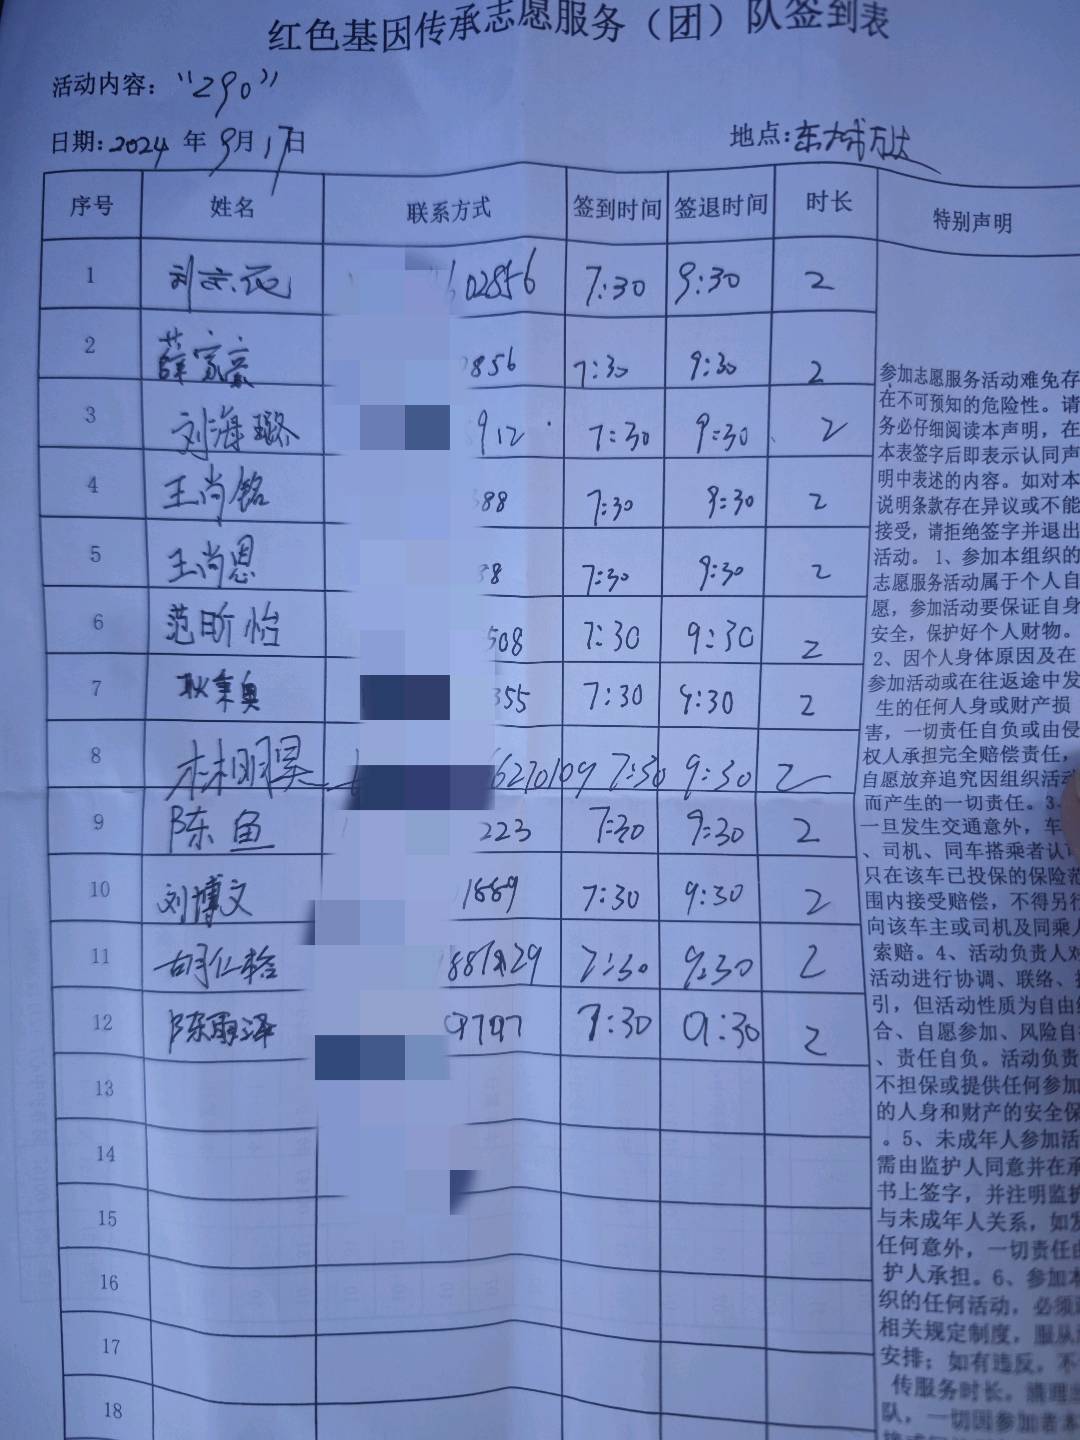 红色基因传承志愿服务（团）队签到表
活动内容：“290”
日期：2024 年 9月 17日 地点：东大城万达
序号 姓名 联系方式 签到时间 签退时间 时长 特别声明
1 602856 7:30 9:30 2
2 薛家豪 856 7:30 9:30 2
3 刘海璐 912 7:30 9:30 2
4 王尚铭 88 7:30 9:30 2
5 王尚恩 8 7:30 9:30 2
6 范昕怡 508 7:30 9:30 2
7 355 7:30 9:30 2
8 林明昊 6270109 7:30 9:30 2
9 陈鱼 223 7:30 9:30 2
10 刘博文 1889 7:30 9:30 2
11 胡仁 7:30 9:30 2
12 陈雨泽 9797 7:30 9:30 2
13
14
15
16
17
18
参加志愿服务活动难免存
在不可预知的危险性。请
务必仔细阅读本声明，在
本表签字后即表示认同声
明中表述的内容。如对本
说明条款存在异议或不能
接受，请拒绝签字并退出
活动。1、参加本组织的
志愿服务活动属于个人自
愿，参加活动要保证自身
安全，保护好个人财物。
2、因个人身体原因及在
参加活动或在往返途中发
生的任何人身或财产损
害，一切责任自负或由侵
权人承担完全赔偿责任，
自愿放弃追究因组织活动
而产生的一切责任。3、
一旦发生交通意外，车
、司机、同车搭乘者认可
只在该车已投保的保险范
围内接受赔偿，不得另行
向该车主或司机及同乘人
索赔。4、活动负责人对
活动进行协调、联络、
引，但活动性质为自由
合、自愿参加、风险自
、责任自负。活动负责
不担保或提供任何参加
的人身和财产的安全保
。5、未成年人参加活
需由监护人同意并在承
书上签字，并注明监护
与未成年人关系，如发
任何意外，一切责任由
护人承担。6、参加本
织的任何活动，必须
相关规定制度，服从
安排；如有违反，不
传服务时长，清理
队，一切因参加者本